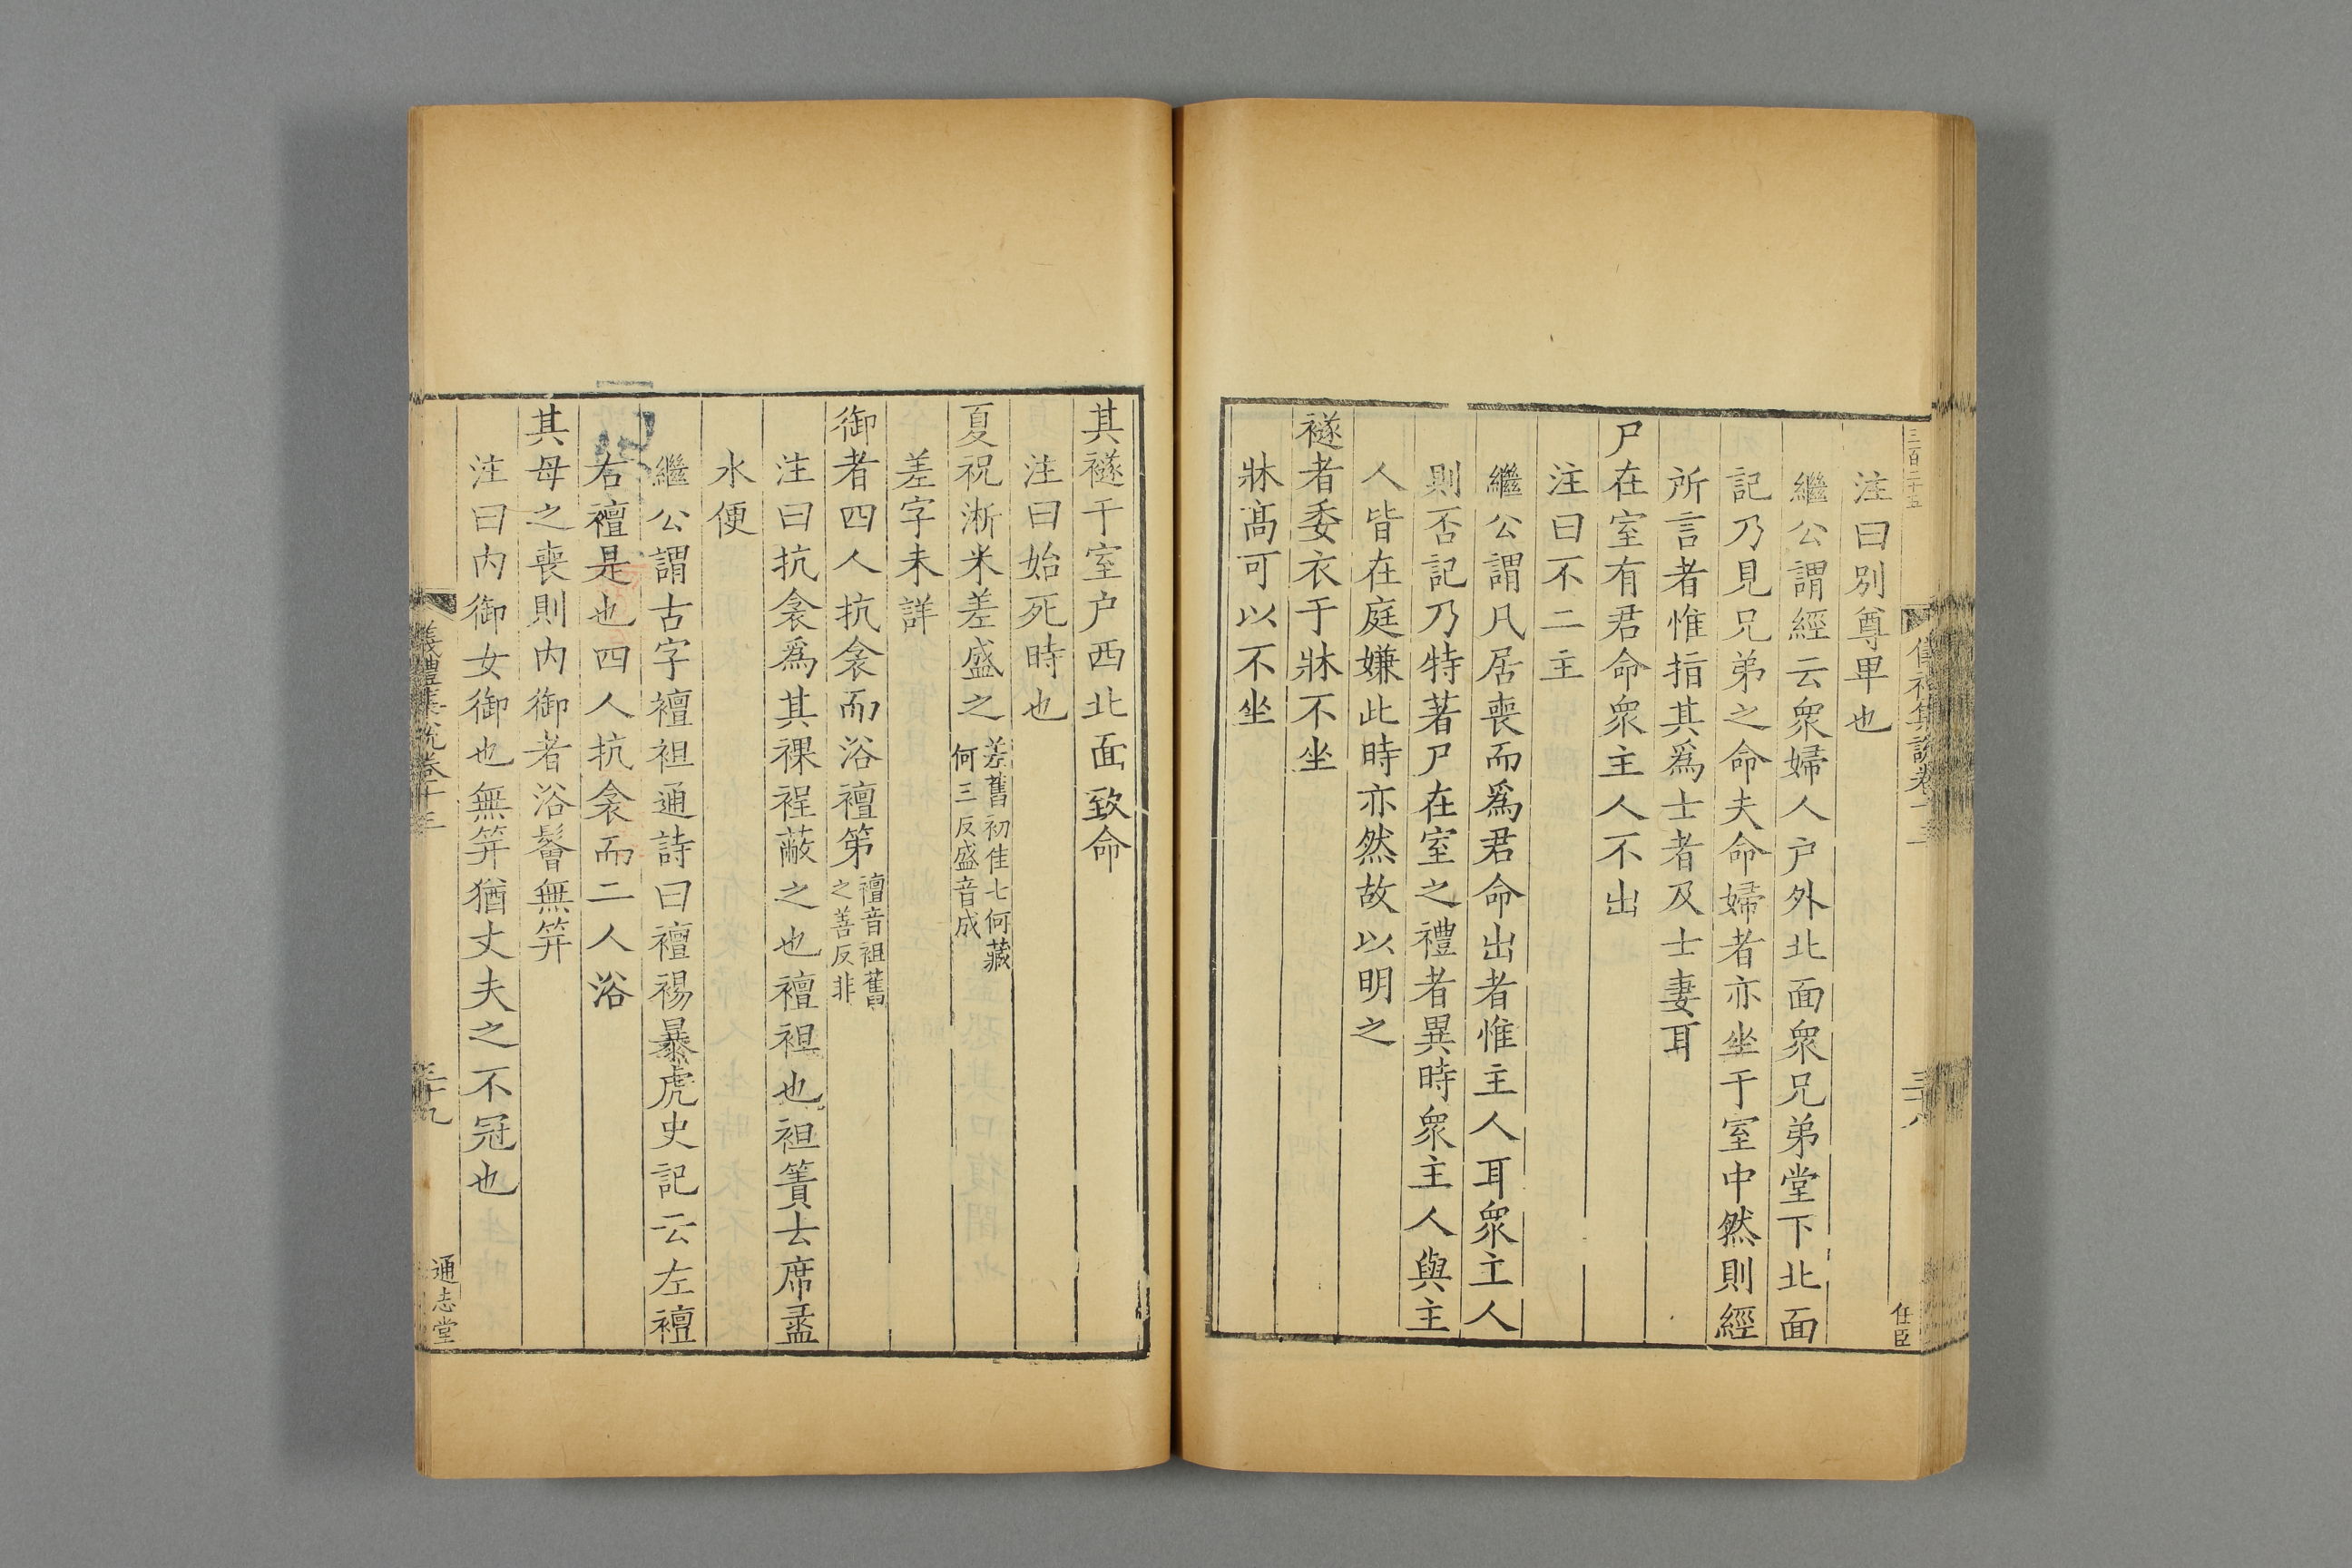 三百二十五
注曰別尊卑也
繼公謂經云衆婦人户外北面衆兄弟堂下北面
記乃見兄弟之命夫命婦者亦坐于室中然則經
所言者惟指其爲士者及士妻耳
尸在室有君命衆主人不出
注曰不二主
繼公謂凡居喪而爲君命出者惟主人耳衆主人
則否記乃特著尸在室之禮者異時衆主人與主
人皆在庭嫌此時亦然故以明之
襚者委衣于牀不坐
牀高可以不坐
任臣
其襚于室户西北面致命
注曰始死時也
夏祝淅米差盛之
差舊初佳七何蔵
何三反盛音成
差字未詳
御者四人抗衾而浴襢笫
襢音袒舊
之善反非
注曰抗衾爲其裸裎蔽之也襢袒也袒簀去席盝
水便
繼公謂古字襢袒通詩曰襢裼暴虎史記云左襢
右襢是也四人抗衾而二人浴
其母之喪則内御者浴鬠無笄
注曰内御女御也無笄猶丈夫之不冠也
儀禮集説卷十三
三十九
通志堂